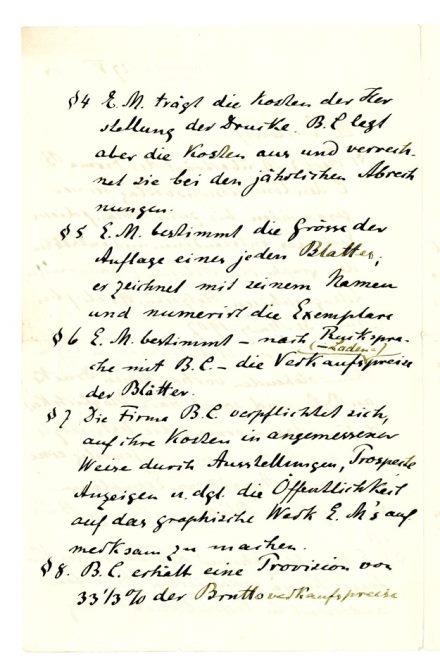 §4 E.M. trägt die Kosten der Her
stellung der Drucke. B.C legt
aber die Kosten aus und verrech-
net sie bei den jährlichen Abrech
nungen.
§5 E.M. bestimmt die Grösse der
Auflage eines jeden Blattes;
er zeichnet mit seinem Namen
und numerirt die Exemplare
§6 E.M. bestimmt – nach Rückspra-
(-Laden-)
che mit B.C. – die Verkaufspreise
der Blätter.
§7 Die Firma B.C verpflichtet sich,
auf ihre Kosten in angemessener
Weise durch Ausstellungen, Prospecte
Anzeigen u. dgl. die Öffentlichkeit
auf das graphische Werk E.M's auf
merksam zu machen.
§8. B.C. erhält eine Provision von
33 1/3 % der Bruttoverkaufspreise